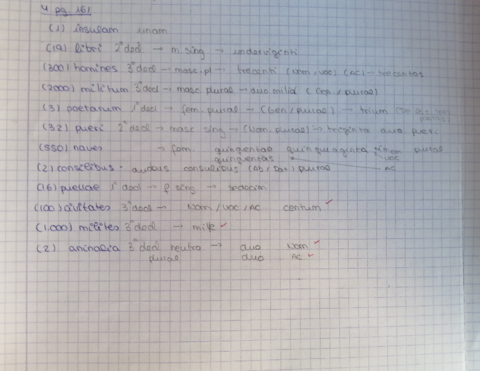 4 pg 161
(1) insulam unam
(19) libri 2ª decl → m. sing → undeviginti
(300) homines 3ª decl → masc. pl → trecenti (Nom/voc) (AC) → trecentos
(2000) militum 3ª decl → masc plural → duo milia (Gen / plural)
(3) poetarum 1ª decl → fem. plural → (Gen / plural) → trium
(32) pueri 2ª decl → masc sing → (Nom. plural) → triginta duo pueri
(550) naves → fem quingentae quinquaginta Nom plural
quingentas voc
AC
(2) consulibus - duobus consulibus (Ab / Dat) plural
(16) puellae 1ª decl → f sing → sedecim
(100) civitates 3ª decl → Nom / Voc / AC centum ✓
(1.000) milites 3ª decl → mille ✓
(2) animalia 3ª decl neutro → duo Nom ✓
plural duo AC ✓